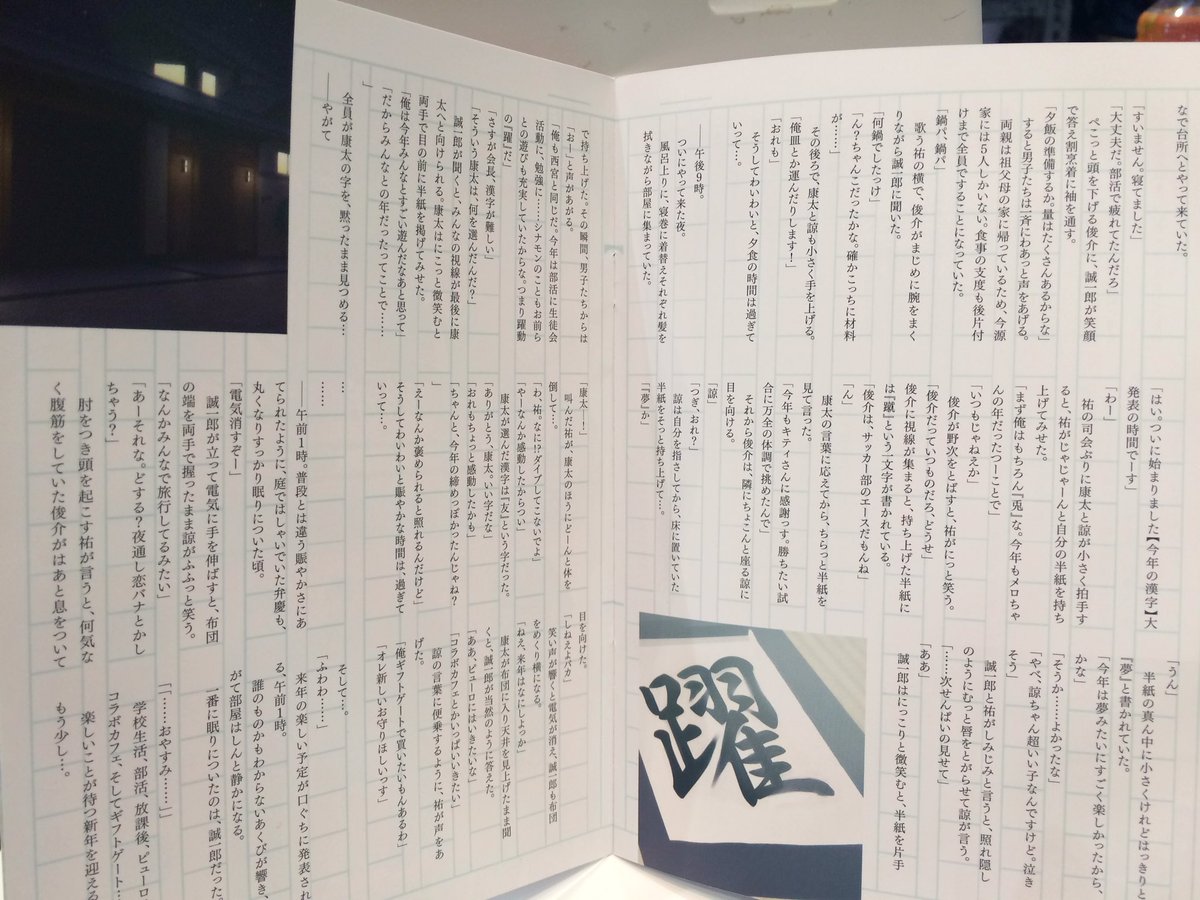 なで台所へとやって来ていた。
「すいません。寝てました」
「大丈夫だ。部活で疲れてたんだろ」
ぺこっと頭を下げる俊介に、誠一郎が笑顔
で答え割烹着に袖を通す。
「夕飯の準備するか。量はたくさんあるからな」
すると男子たちは一斉にわあっと声をあげる。
両親は祖父母の家に帰っているため、今源
家には5人しかいない。食事の支度も後片付
けまで全員ですることになっていた。
「鍋パ、鍋パ」
歌う祐の横で、俊介がまじめに腕をまく
りながら誠一郎に聞いた。
「何鍋でしたっけ」
「ん？ちゃんこだったかな。確かこっちに材料
が……」
その後ろで、康太と諒も小さく手を上げる。
「俺皿とか運んだりします！」
「おれも」
そうしてわいわいと、夕食の時間は過ぎて
いって…。
――午後9時。
ついにやって来た夜。
風呂上りに、寝巻に着替えそれぞれ髪を
拭きながら部屋に集まっていた。
「はい。ついに始まりました【今年の漢字】大
発表の時間でーす」
「わー」
祐の司会ぶりに康太と諒が小さく拍手す
ると、祐がじゃじゃーんと自分の半紙を持ち
上げてみせた。
「まず俺はもちろん『兎』な。今年もメロちゃ
んの年だったつーことで」
「いつもじゃねえか」
俊介が野次をとばすと、祐がにっと笑う。
「俊介だっていつものだろ、どうせ」
俊介に視線が集まると、持ち上げた半紙に
は『蹴』という文字が書かれている。
「俊介は、サッカー部のエースだもんね」
「ん」
康太の言葉に応えてから、ちらっと半紙を
見て言った。
「今年もキティさんに感謝っす。勝ちたい試
合に万全の体調で挑めたんで」
それから俊介は、隣にちょこんと座る諒に
目を向ける。
「諒」
「つぎ、おれ？」
諒は自分を指さしてから、床に置いていた
半紙をそっと持ち上げて…。
「『夢』か」
「うん」
半紙の真ん中に小さくけれどはっきりと
『夢』と書かれていた。
「今年は夢みたいにすごく楽しかったから、
かな」
「そうか……よかったな」
「やべ、諒ちゃん超いい子なんですけど。泣き
そう」
誠一郎と祐がしみじみと言うと、照れ隠し
のようにむっと唇をとがらせて諒が言う。
「……次せんぱいの見せて」
「ああ」
誠一郎はにっこりと微笑むと、半紙を片手
躍
で持ち上げた。その瞬間、男子たちからは
「おー」と声があがる。
「俺も西宮と同じだ。今年は部活に生徒会
活動に、勉強に……シナモンのこともお前ら
との遊びも充実していたからな。つまり躍動
の『躍』だ」
「さすが会長、漢字が難しい」
「そういう康太は、何を選んだんだ？」
誠一郎が聞くと、みんなの視線が最後に康
太へと向けられる。康太はにこっと微笑むと
両手で目の前に半紙を掲げてみせた。
「俺は今年みんなとすごい遊んだなあと思って」
「だからみんなとの年だったってことで……
」
全員が康太の字を、黙ったまま見つめる…
――やがて
「康太ー！」
叫んだ祐が、康太のほうにどーんと体を
倒して…。
「わ、祐。なに!?ダイブしてこないでよ」
「やーなんか感動したからつい」
康太が選んだ漢字は『友』という字だった。
「ありがとう、康太。いい字だな」
「おれもちょっと感動したかも」
「ちゃんと、今年の締めっぽかったんじゃね？
」
「えーなんか褒められると照れるんだけど」
そうしてわいわいと賑やかな時間は、過ぎて
いって…。
…
……
――午前1時。普段とは違う賑やかさにあ
てられたように、庭ではしゃいでいた弁慶も、
丸くなりすっかり眠りについた頃。
「電気消すぞー」
誠一郎が立って電気に手を伸ばすと、布団
の端を両手で握ったまま諒がふふっと笑う。
「なんかみんなで旅行してるみたい」
「あーそれな。どする？夜通し恋バナとかし
ちゃう？」
肘をつき頭を起こす祐が言うと、何気な
く腹筋をしていた俊介がはあと息をついて
目を向けた。
「しねえよバカ」
笑い声が響くと電気が消え、誠一郎も布団
をめくり横になる。
「ねえ、来年はなにしよっか」
康太が布団に入り天井を見上げたまま聞
くと、誠一郎が当然のように答えた。
「ああ、ピューロにはいきたいな」
「コラボカフェとかいっぱいいきたい」
諒の言葉に便乗するように、祐が声をあ
げた。
「俺ギフトゲートで買いたいもんあるわ」
「オレ新しいお守りほしいっす」
そして…。
「ふわわ……」
来年の楽しい予定が口ぐちに発表され
る、午前1時。
誰のものかもわからないあくびが響き、
がて部屋はしんと静かになる。
一番に眠りについたのは、誠一郎だった。
「……おやすみ……」
学校生活、部活、放課後、ピューロ
コラボカフェ、そしてギフトゲート…
楽しいことが待つ新年を迎える
もう少し…。